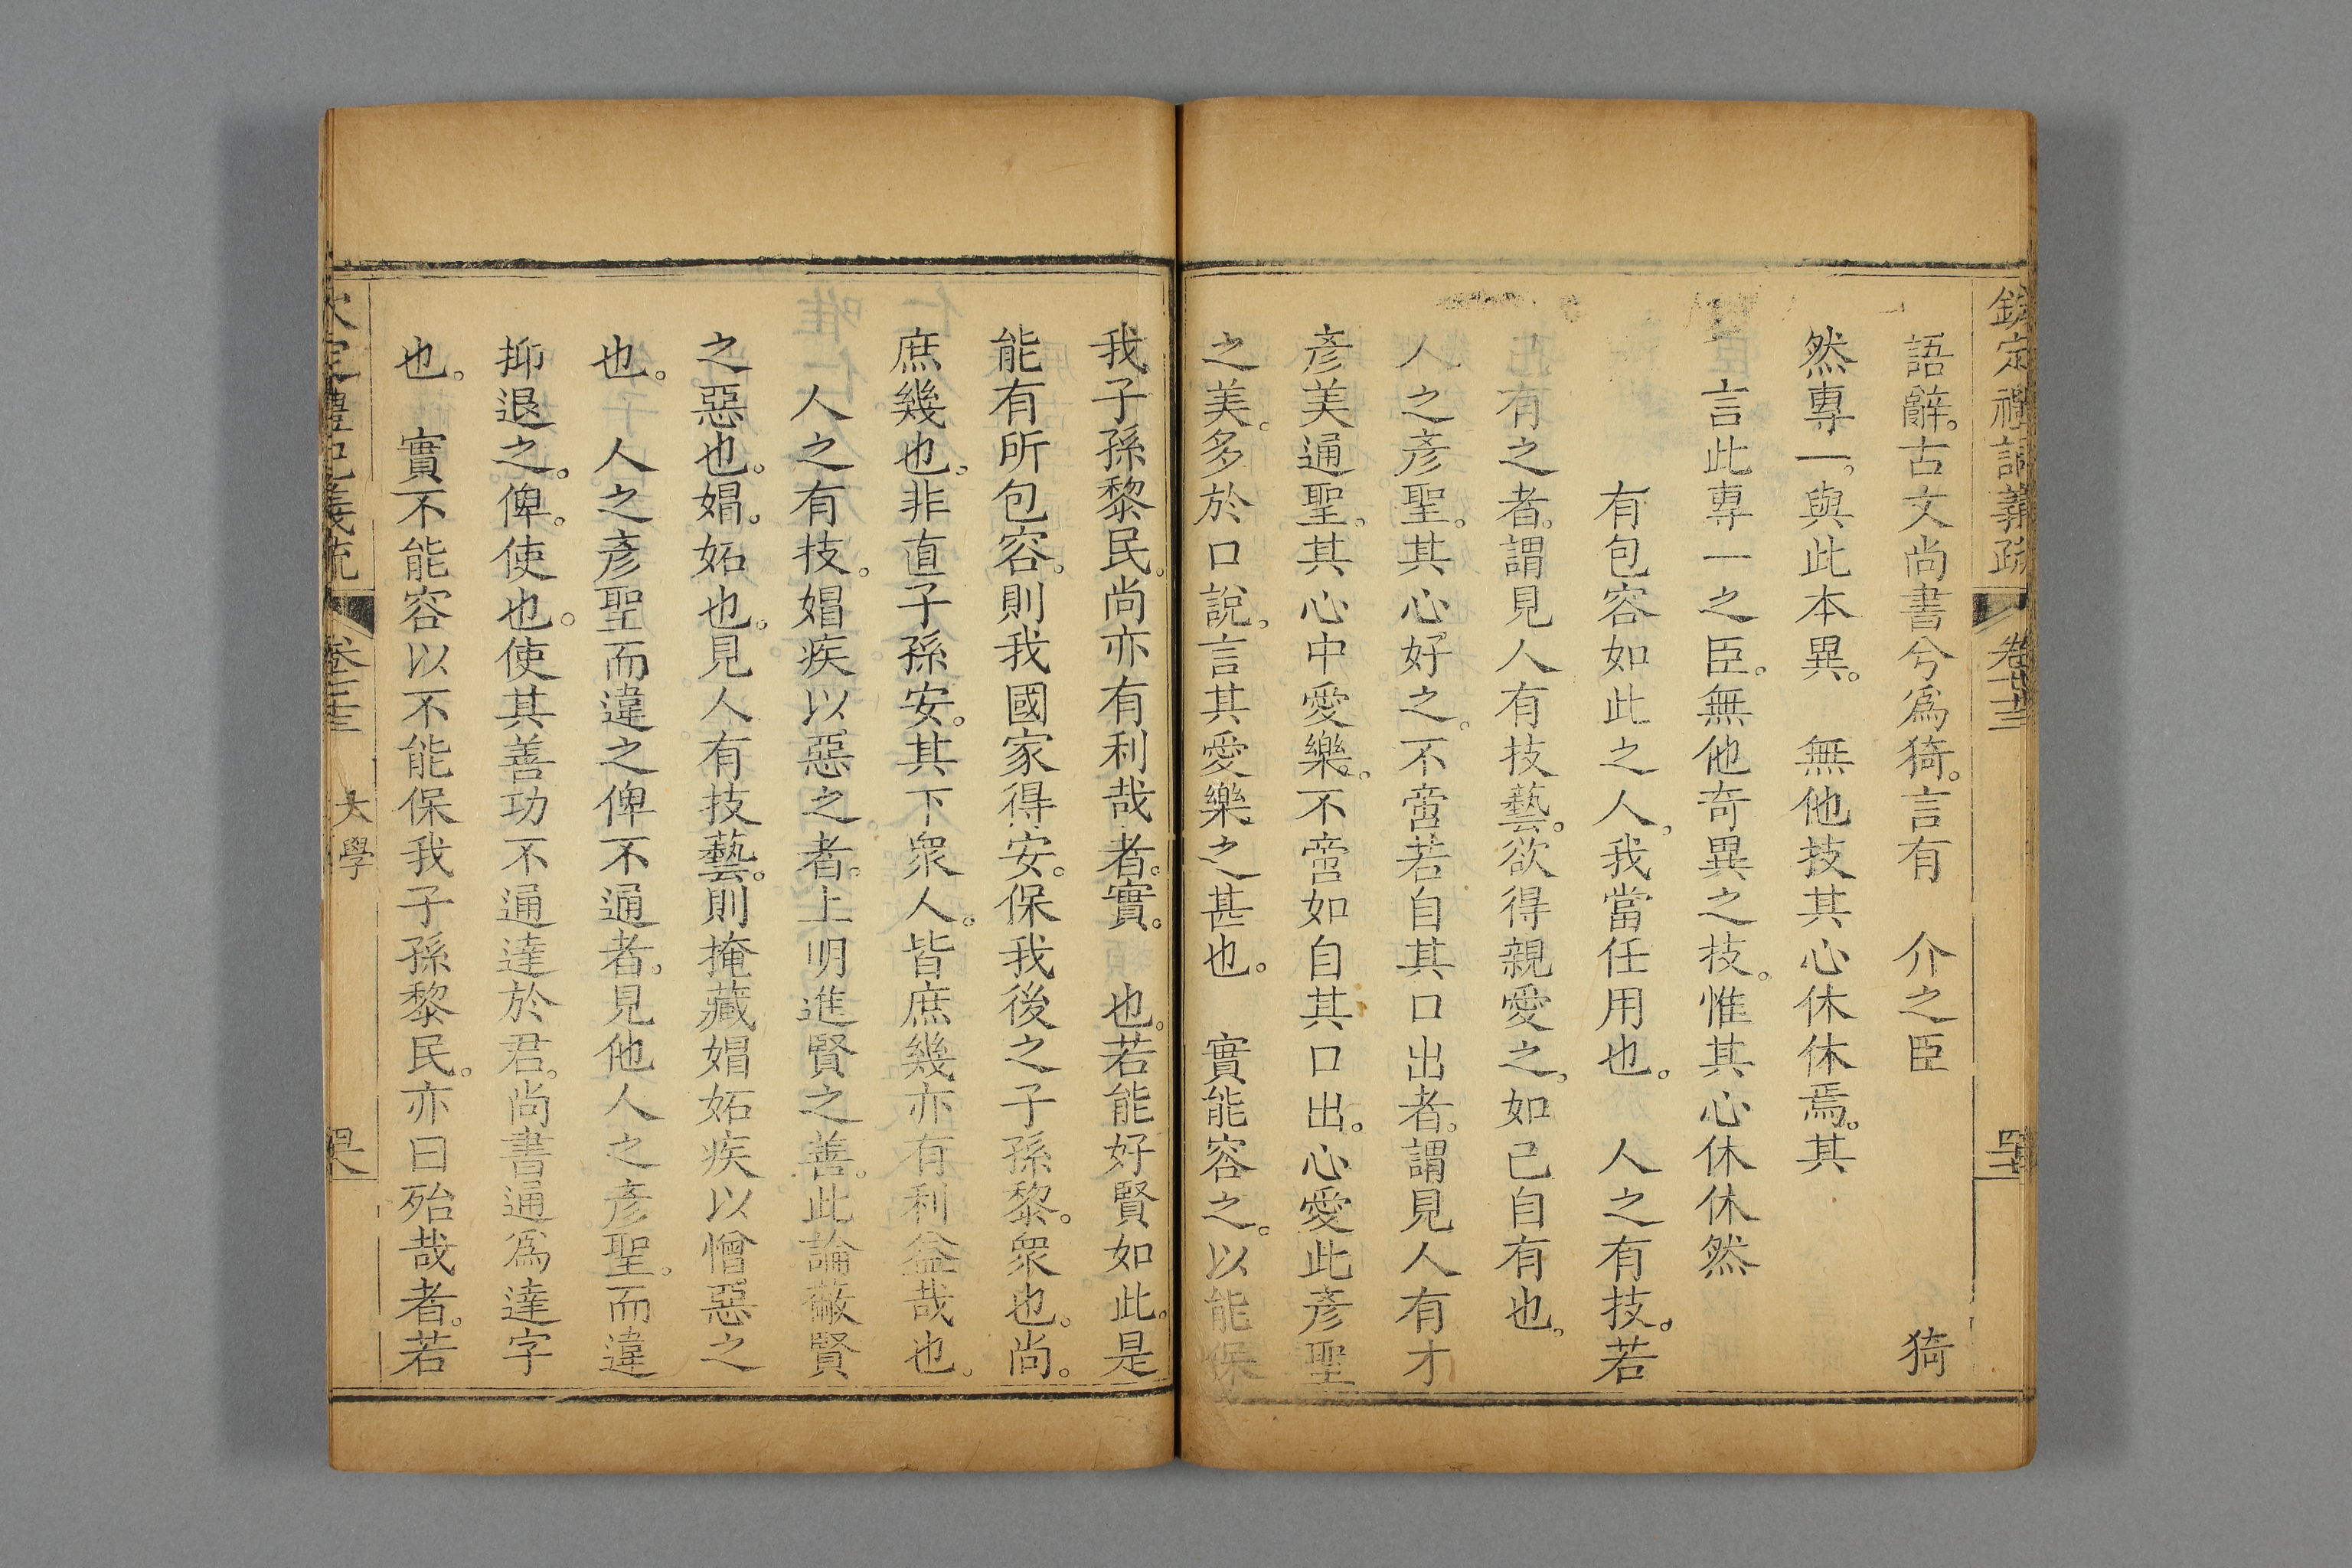 欽定禮記義疏 卷七十三
語辭。古文尚書兮爲猗。言有 介之臣 猗
然專一。與此本異。 無他技其心休休焉。其
言此專一之臣。無他奇異之技。惟其心休休然
有包容如此之人。我當任用也。 人之有技。若
有之者。謂見人有技藝。欲得親愛之。如己自有也。
人之彥聖。其心好之。不啻若自其口出者。謂見人有才
彥美通聖。其心中愛樂。不啻如自其口出。心愛此彥聖
之美。多於口說。言其愛樂之甚也。 實能容之。以能保
我子孫黎民。尚亦有利哉者。實。 也。若能好賢如此。是
能有所包容。則我國家得安。保我後之子孫黎。衆也。尚。
庶幾也。非直子孫安。其下衆人。皆庶幾亦有利益哉也。
人之有技。媢疾以惡之者。上明進賢之善。此論蔽賢
之惡也。媢。妬也。見人有技藝。則掩藏媢妬疾以憎惡之
也。 人之彥聖而違之俾不通者。見他人之彥聖。而違
抑退之。俾。使也。使其善功不通達於君。尚書通爲達字
也。 實不能容以不能保我子孫黎民。亦曰殆哉者。若
定禮記義疏 卷七十三 大學